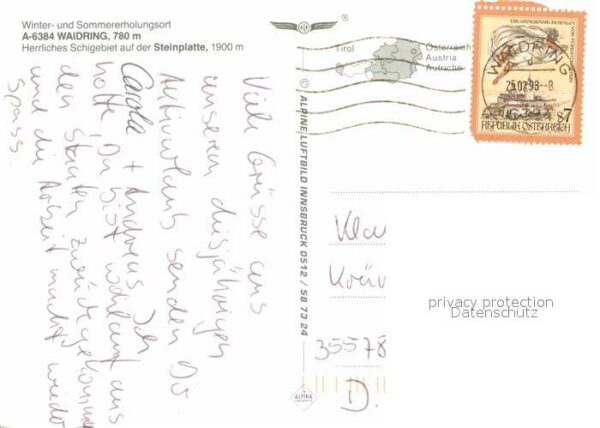 Winter- und Sommererholungsort
A-6384 WAIDRING, 780 m
Herrliches Schigebiet auf der Steinplatte, 1900 m
Viele Grüsse aus
unserem diesjährigen
Aktivurlaub senden Dir
Carola + Andreas Ich
hoffe Du bist wohlauf aus
den Staaten zurückgekommen
und die Arbeit macht wieder
Spass.
© ALPINE LUFTBILD INNSBRUCK 0512 / 58 73 24
ALPINE
Tirol
Österreich
Austria
Autriche
WAIDRING
25.02.98 - 8
S7
REPUBLIK ÖSTERREICH
35578
D.
privacy protection
Datenschutz